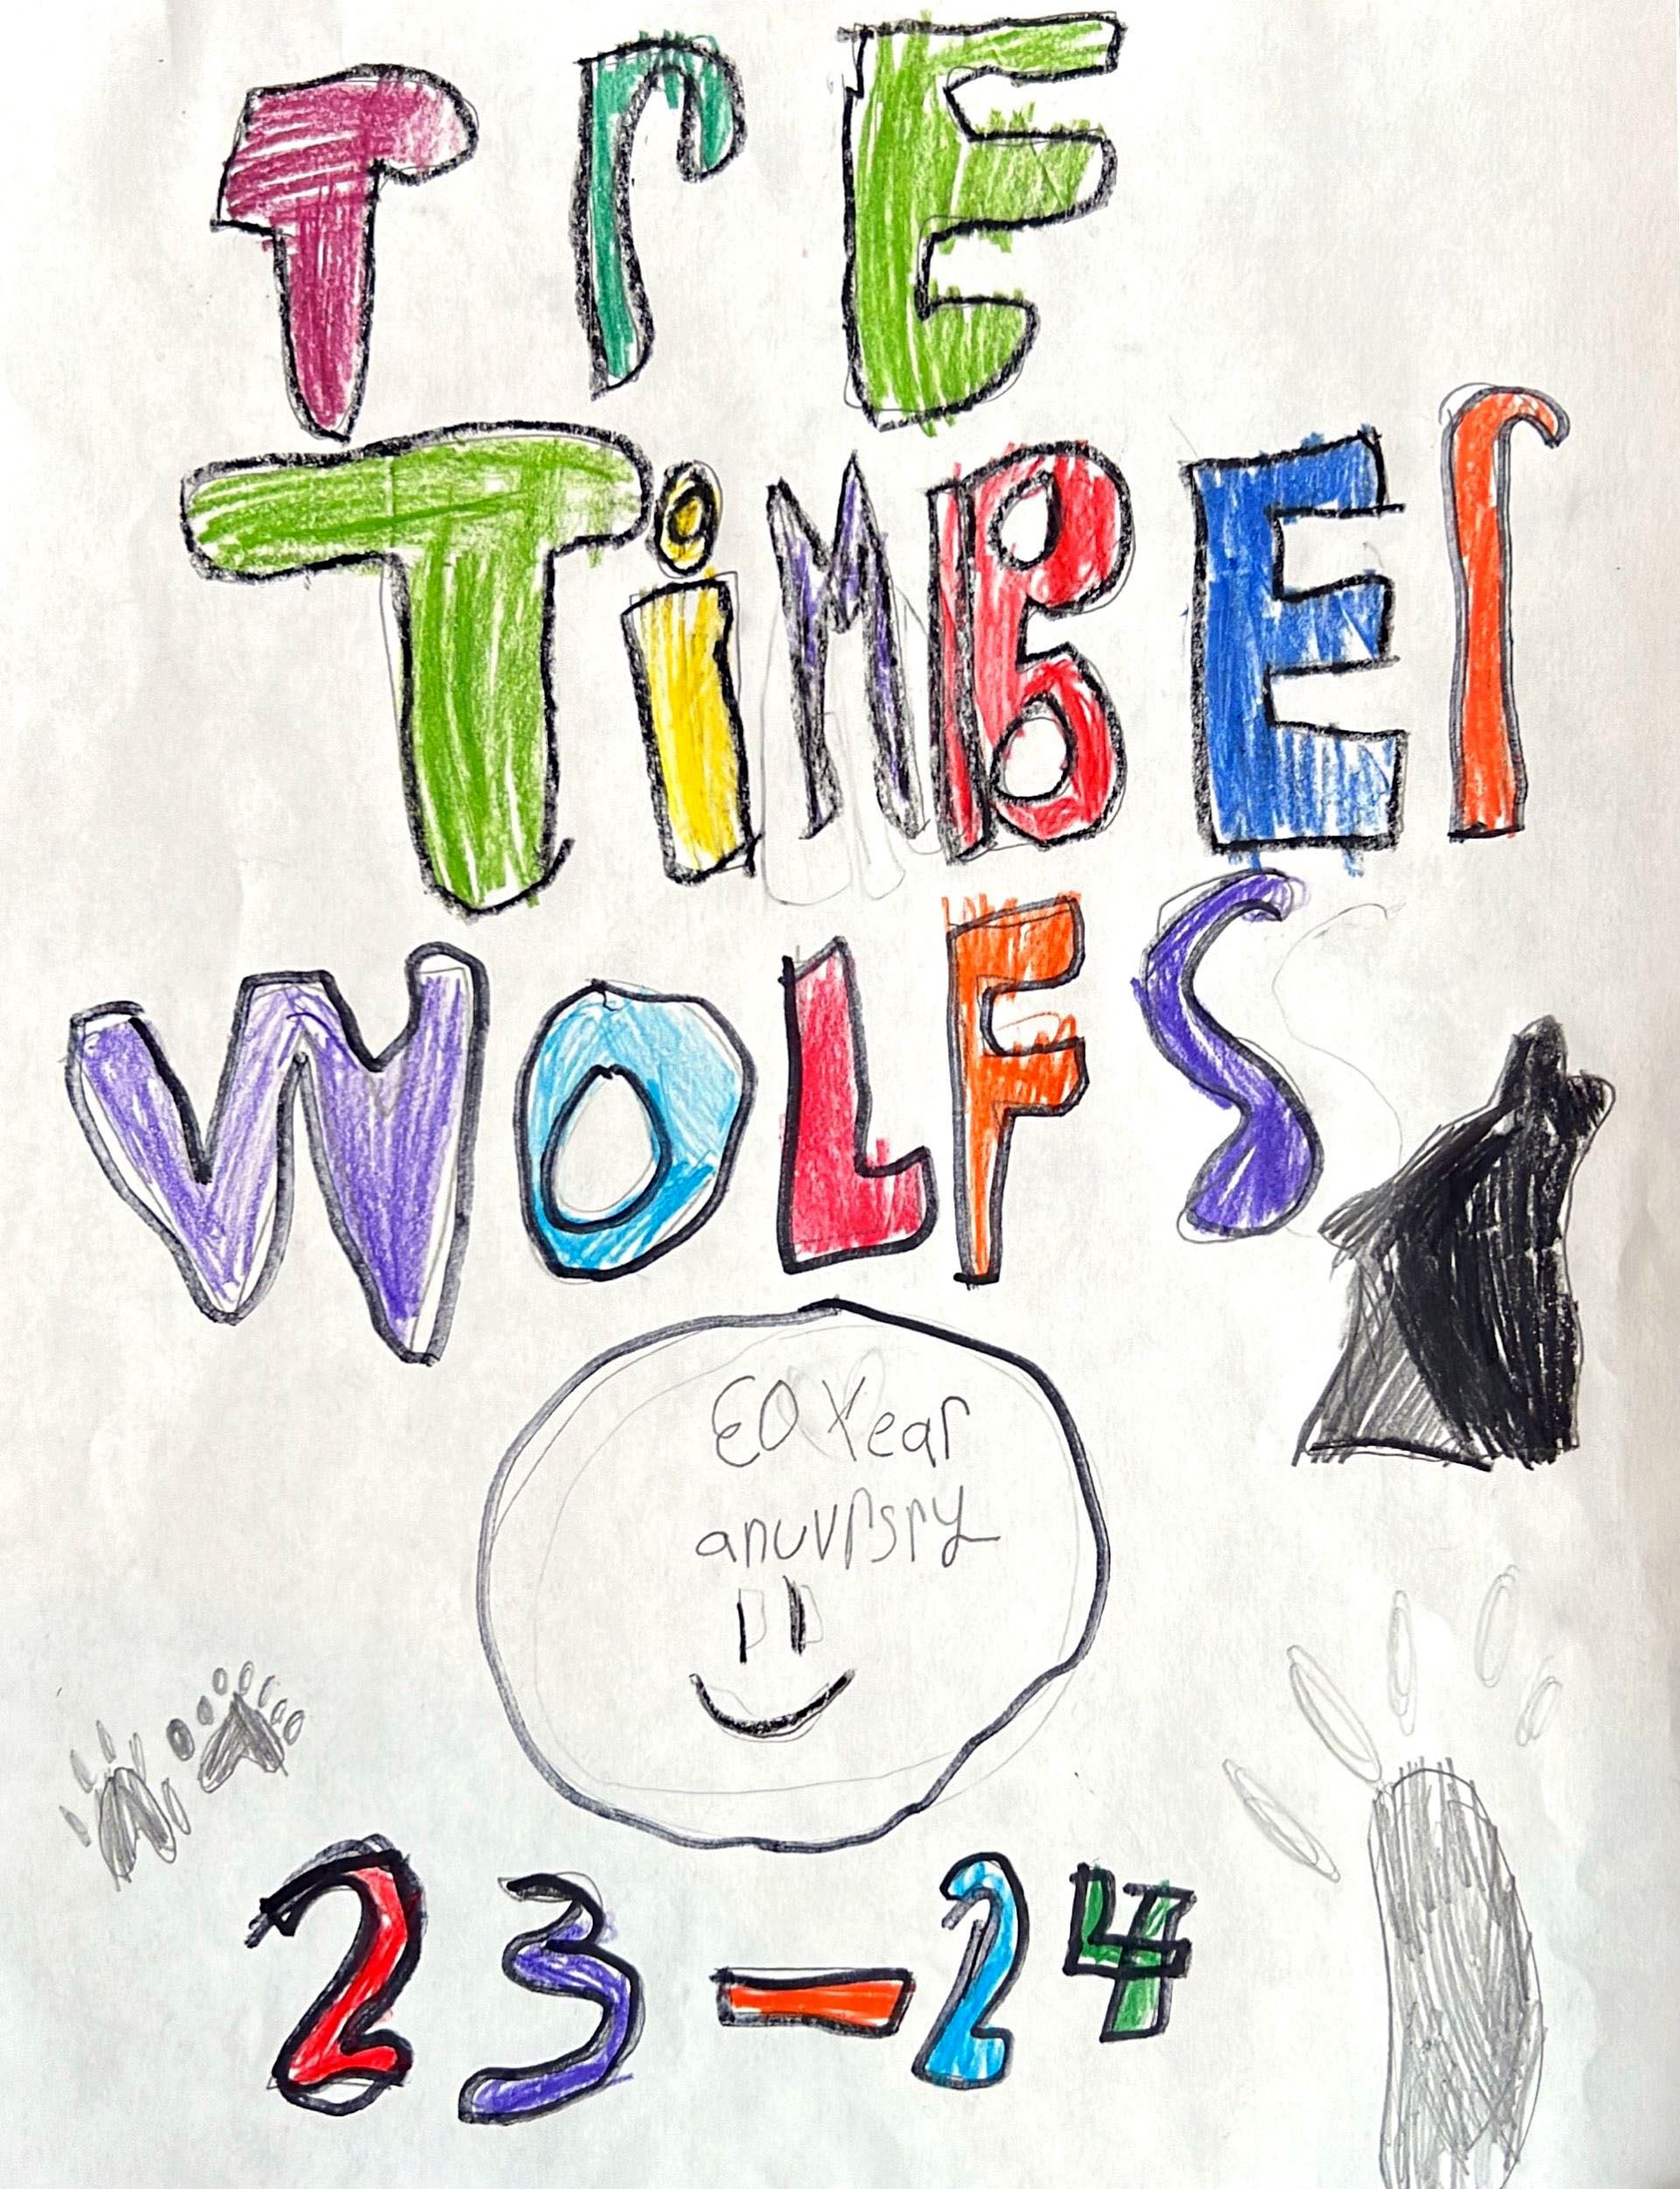 TrE
TiMBEr
WOLFS
30 Year
anuvrsry
23-24